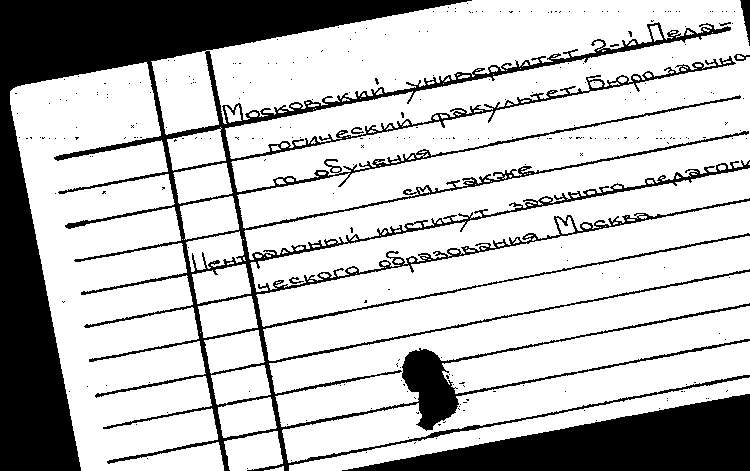 Московский университет, 2-й Педа-
гогический факультет. Бюро заочно-
го обучения.
см. также
Центральный институт заочного педагоги-
ческого образования. Москва.